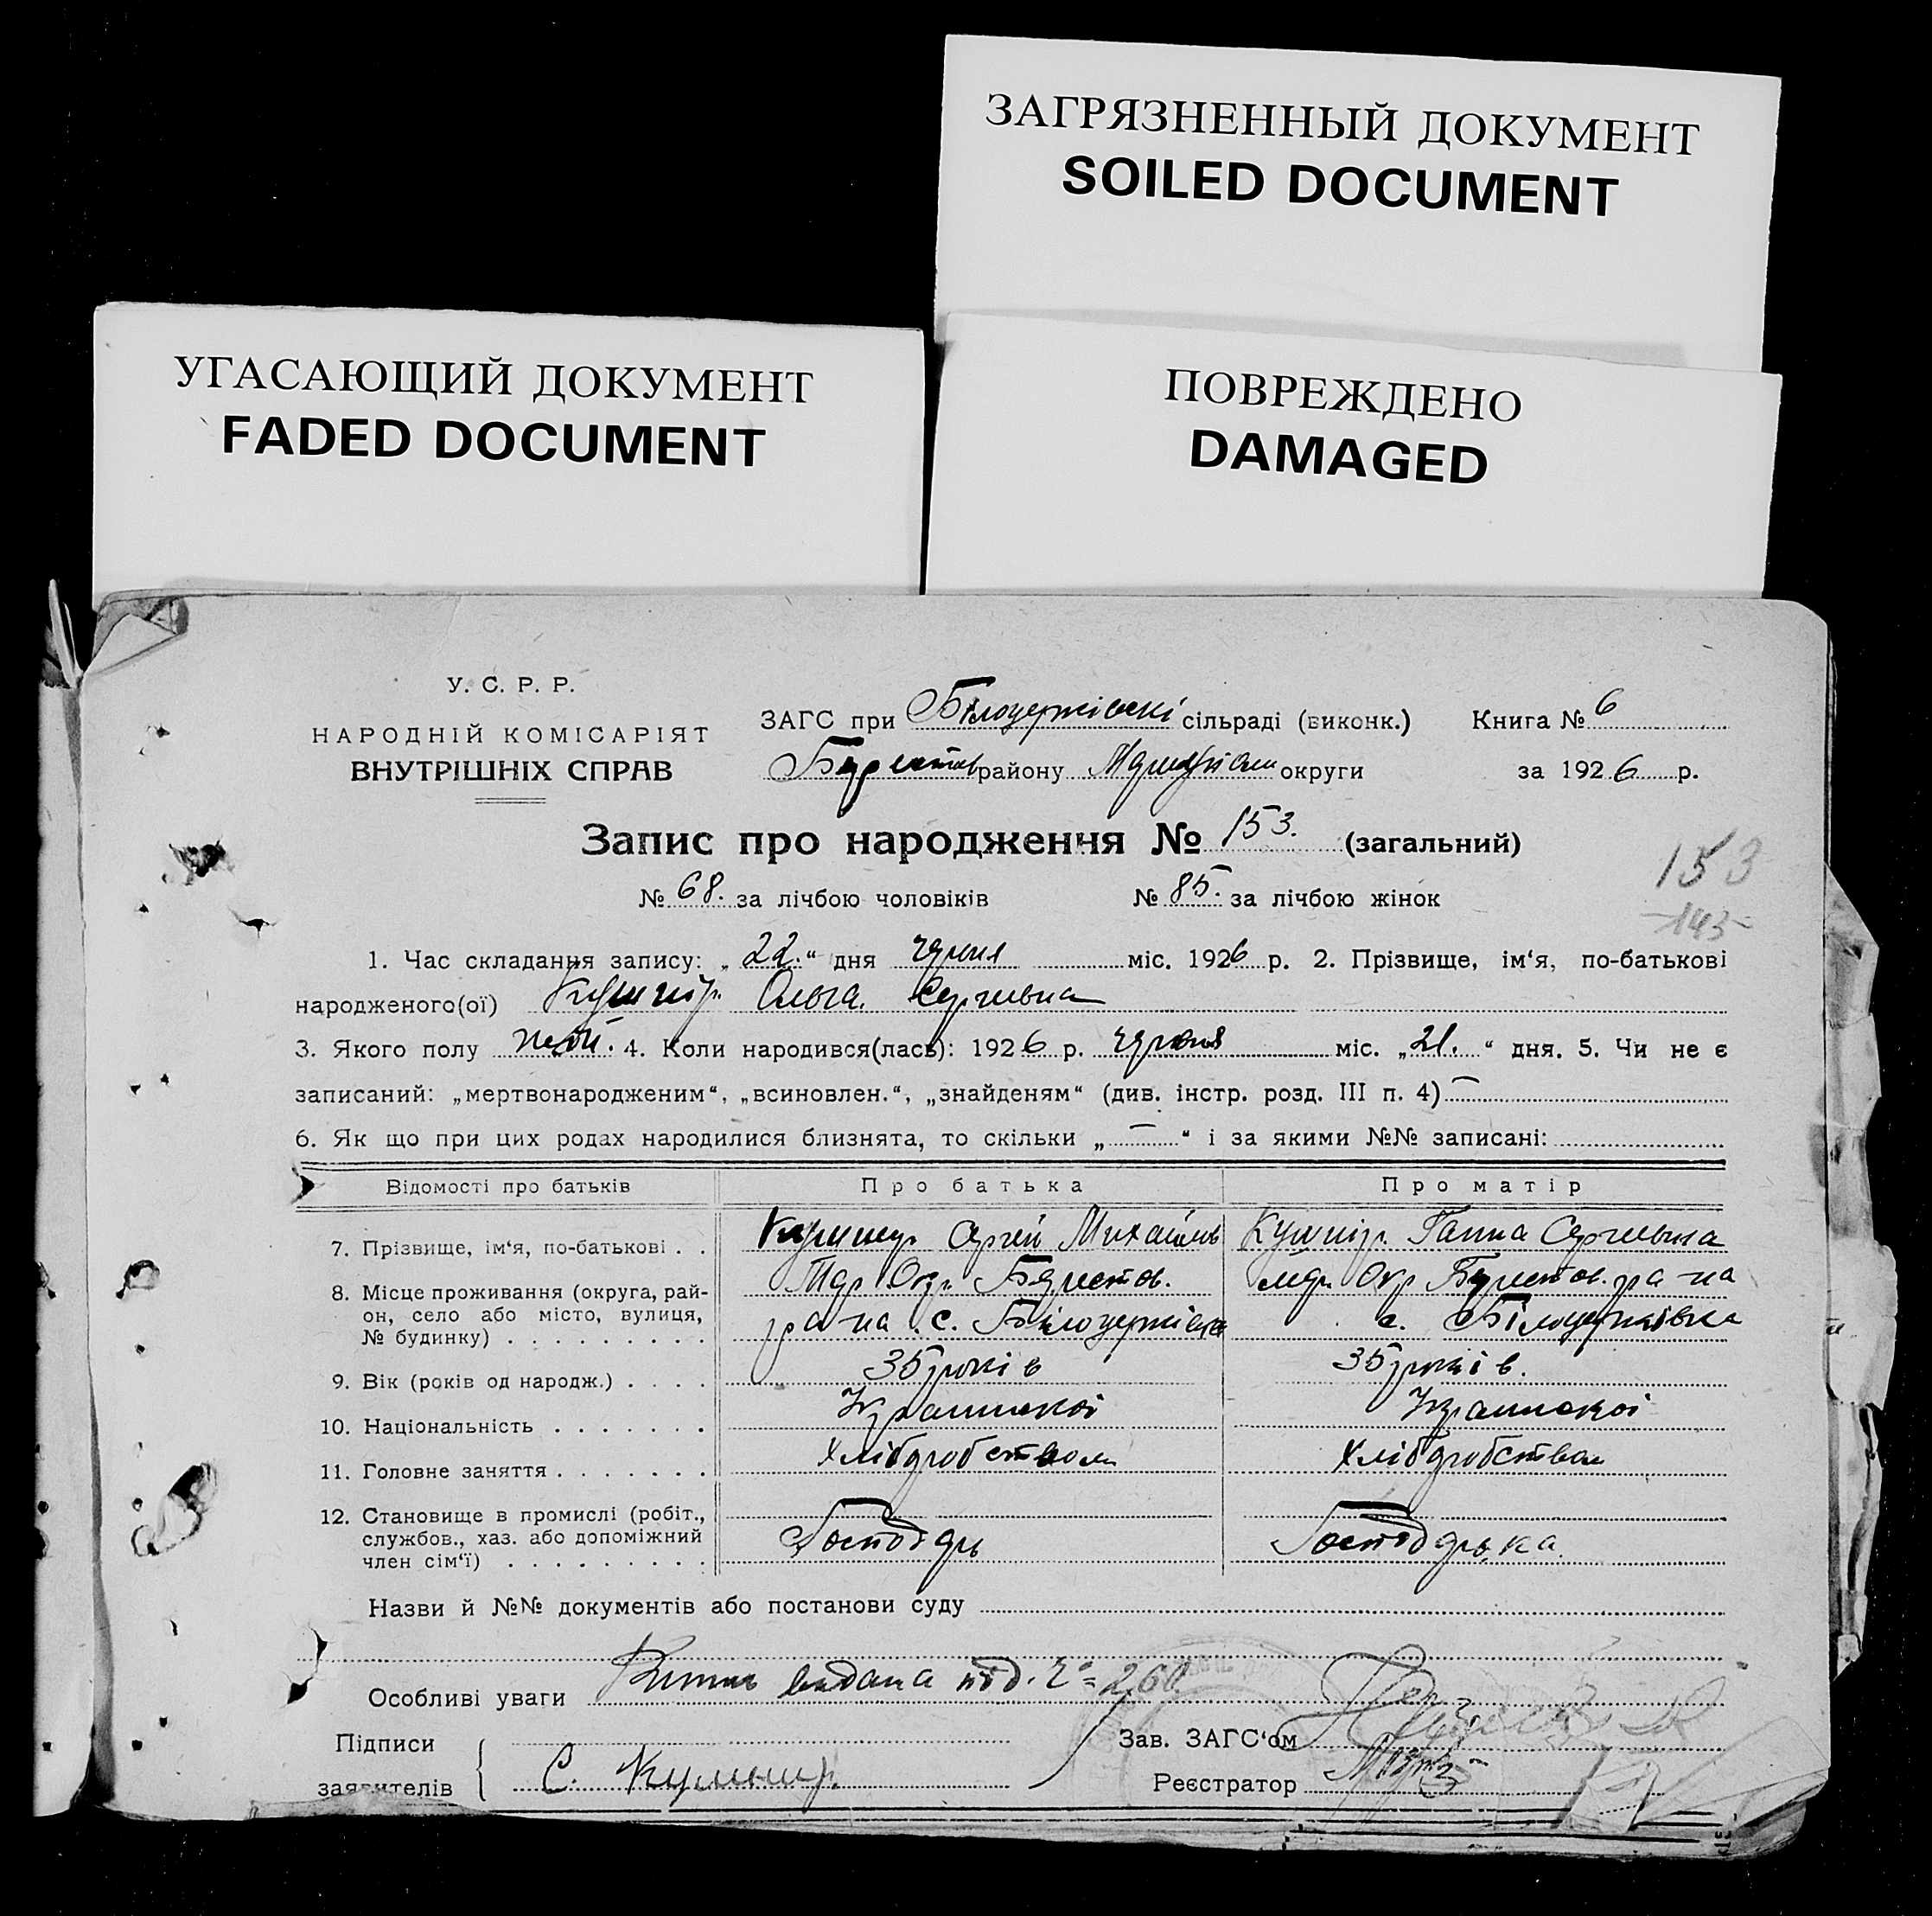 ЗАГРЯЗНЕННЫЙ ДОКУМЕНТ
SOILED DOCUMENT
УГАСАЮЩИЙ ДОКУМЕНТ
FADED DOCUMENT
ПОВРЕЖДЕНО
DAMAGED
У. С. Р. Р.
НАРОДНІЙ КОМІСАРІЯТ
ВНУТРІШНІХ СПРАВ
ЗАГС при Білоцерківскі сільраді (виконк.) Книга № 6
району округи за 1926 р.
Запис про народження № 153. (загальний)
153
№ 68. за лічбою чоловіків № 85. за лічбою жінок
143
1. Час складання запису: „22.“ дня червня міс. 1926 р. 2. Прізвище, ім‘я, по-батькові
народженого(ої) Кушнір Ольга. Сергиевна
3. Якого полу жін. 4. Коли народився(лась): 1926 р. червня міс. „21.“ дня. 5. Чи не є
записаний: „мертвонародженим“, „всиновлен.“, „знайденям“ (див. інстр. розд. III п. 4) —
6. Як що при цих родах народилися близнята, то скільки „—“ і за якими №№ записані:
Відомості про батьків Про батька Про матір
7. Прізвище, ім‘я, по-батькові . . Кушнир Сергій Михайлов Кушнір Ганна Сергиевна
8. Місце проживання (округа, рай- Мар Окр. Берестов. Мар Окр Берестов. ра-на
он, село або місто, вулиця, ра-на с. Білоцерківка с. Білоцерківка
№ будинку) . . . . . . . . .
9. Вік (років од народж.) . . . . 35 років 35 років.
10. Національність . . . . . . . Украинскої Украинскої
11. Головне заняття . . . . . . . Хліборобством Хліборобством
12. Становище в промислі (робіт.,
службов., хаз. або допоміжний Господарь Господарька.
член сім‘ї) . . . . . . . . .
Назви й №№ документів або постанови суду
Особливі уваги видана під. № 260
Підписи Зав. ЗАГС‘ом
заявителів С. Кушнир. Реєстратор